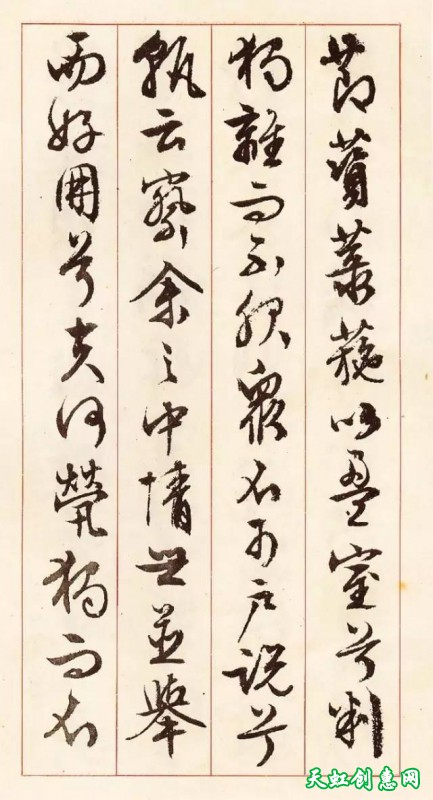 節薋菉葹以盈室兮判
獨離而不服眾不可戶說兮
孰云察余之中情世並舉
而好朋兮夫何煢獨而不
天虹创意网